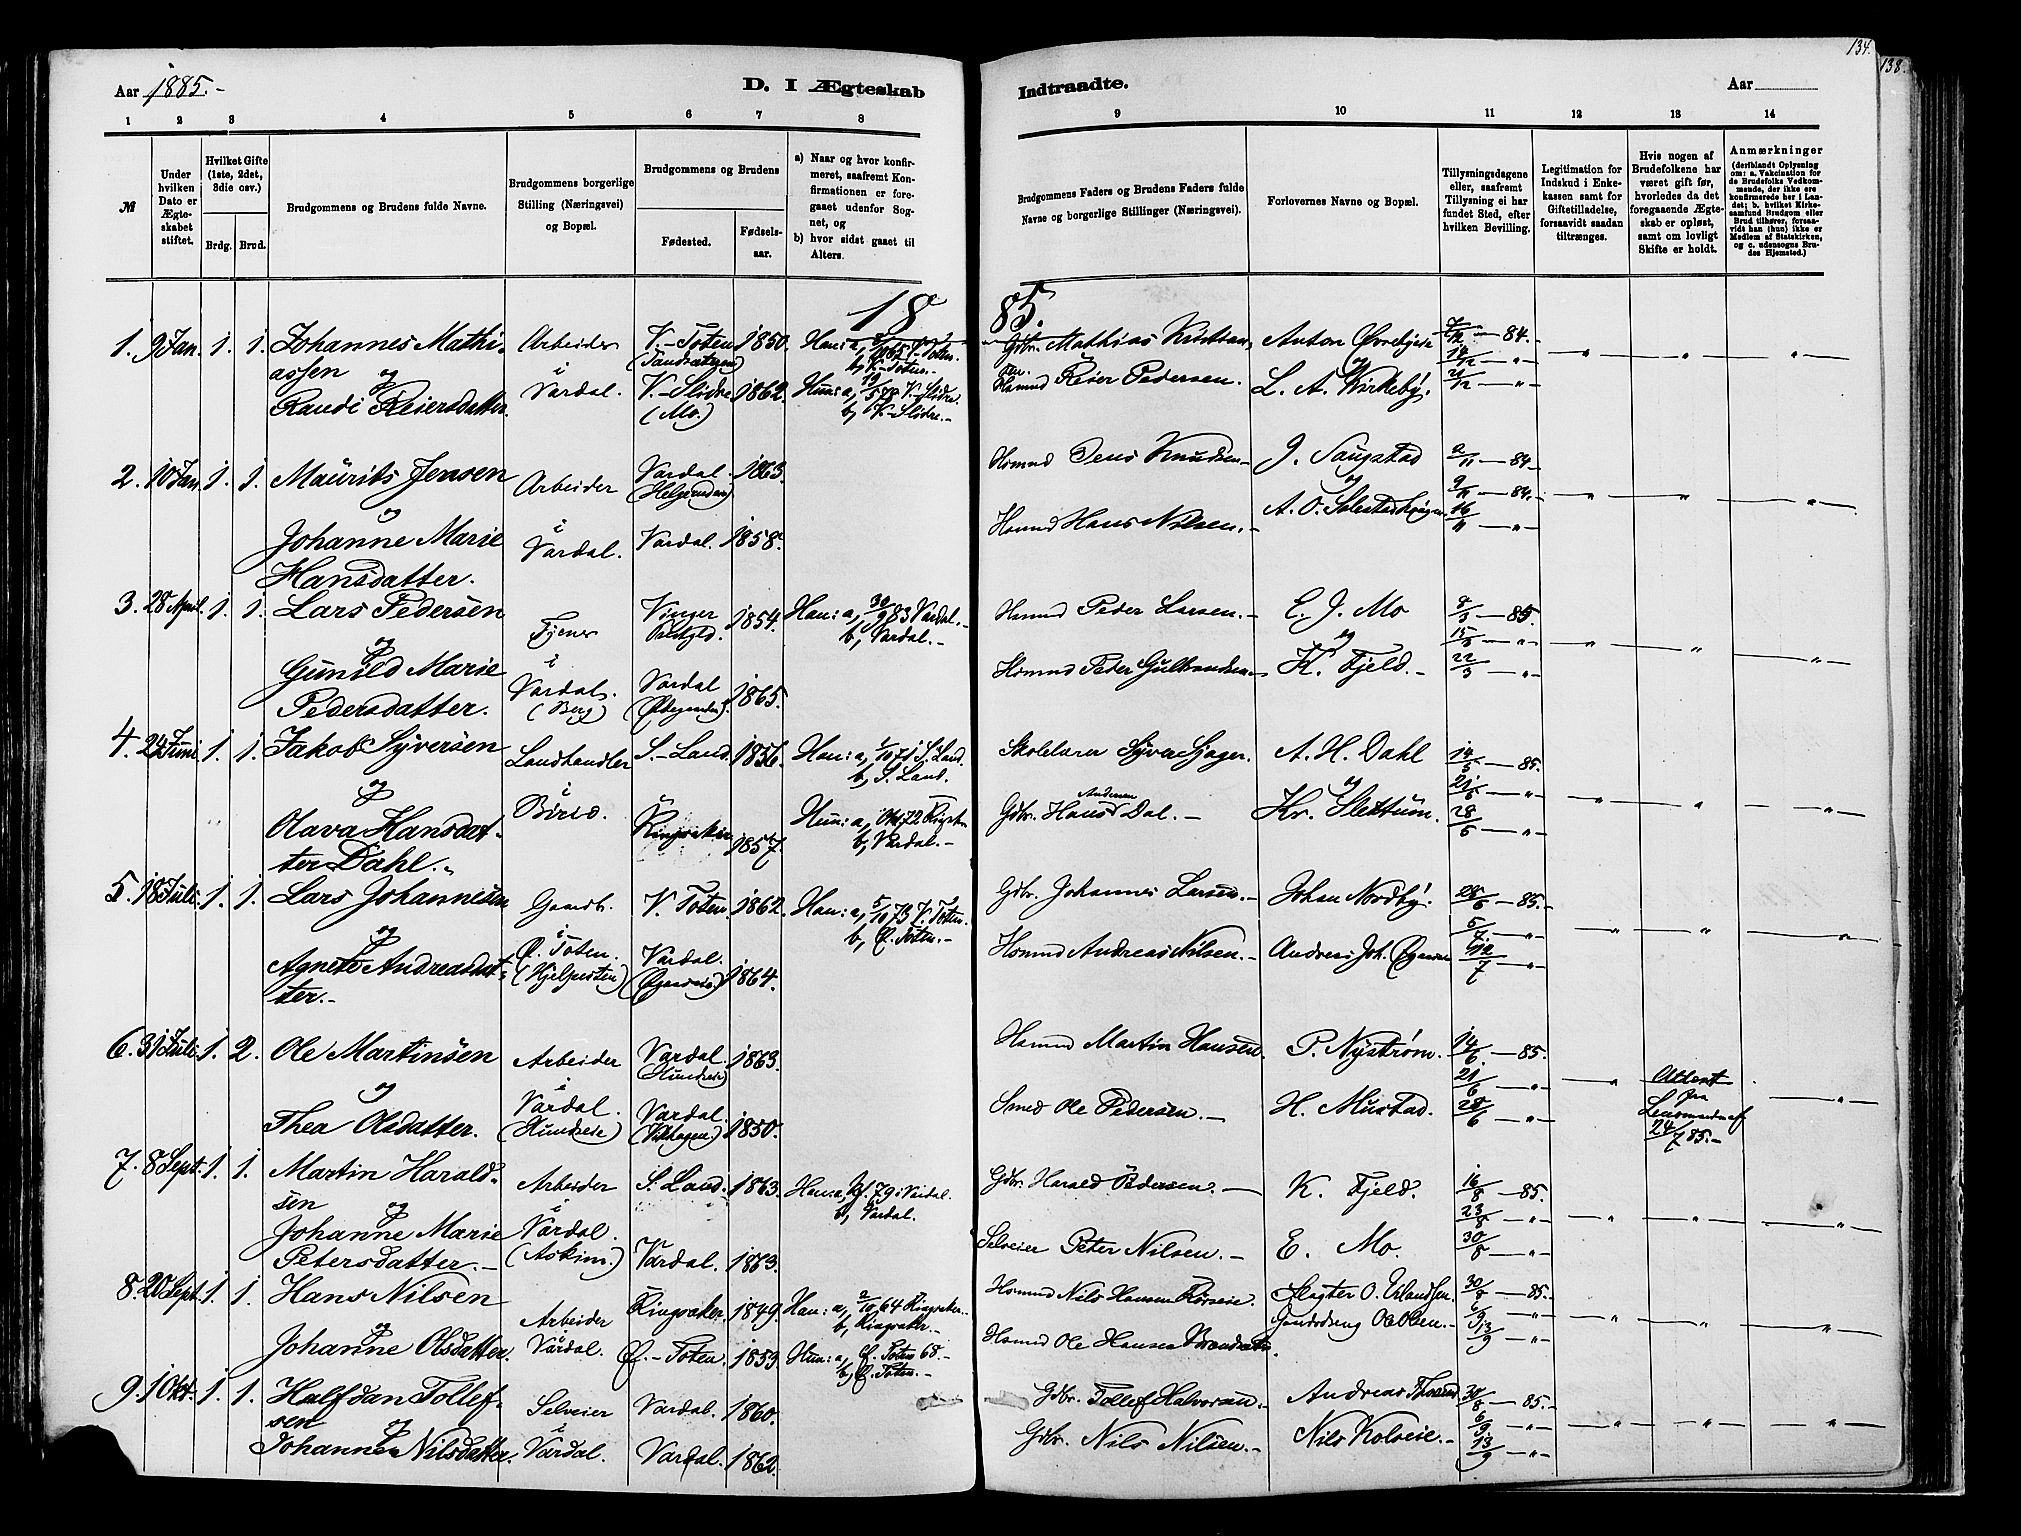 134.
138.
Aar 1885.-
D. I Ægteskab
Indtraadte.
Aar
1 2 3 4 5 6 7 8
9 10 11 12 13 14
№
Under hvilken Dato er Ægteskabet stiftet.
Hvilket Gifte (1ste, 2det, 3die osv.)
Brdg. Brud.
Brudgommens og Brudens fulde Navne.
Brudgommens borgerlige Stilling (Næringsvei) og Bopæl.
Brudgommens og Brudens
Fødested.
Fødselsaar.
a) Naar og hvor konfirmeret, saafremt Konfirmationen er foregaaet udenfor Sognet, og
b) hvor sidst gaaet til Alters.
Brudgommens Faders og Brudens Faders fulde Navne og borgerlige Stillinger (Næringsvei).
Forlovernes Navne og Bopæl.
Tillysningsdagene eller, saafremt Tillysning ei har fundet Sted, efter hvilken Bevilling.
Legitimation for Indskud i Enkekassen samt for Giftetilladelse, forsaavidt saadan tiltrænges.
Hvis nogen af Brudefolkene har været gift før, hvorledes da det foregaaende Ægteskab er opløst, samt om lovligt Skifte er holdt.
Anmærkninger (deriblandt Oplysning om: a. Vakcination for de Brudefolks Vedkommende, der ikke ere konfirmerede her i Landet; b. hvilket Kirkesamfund Brudgom eller Brud tilhører, forsaavidt han (hun) ikke er Medlem af Statskirken, og c. udensogns Brudes Hjemsted.)
1885.
1. 9 Jan. 1. 1. Johannes Mathi- Arbeider V.-Toten 1850. Han: V. Toten. Gdbr. Mathias Kristian- Anton 7/12 - 84.
assen og i b, V.-Toten.- sen. og 14/12 - " -
Randi Reiersdatter. Vardal. V.-Slidre 1862. Hun: a, 19/5 78 V.-Slidre. Hsmnd Reier Pedersen. L. A. Kirkeby. 21/12 - " -
(Mo.) b, V.-Slidre.-
2. 10 Jan. 1. 1. Maurits Jensen Arbeider Vardal. 1863. Hsmnd Jens Knudsen- J. Saugstad 2/11 - 84-
og i og 9/11 - 84.-
Johanne Marie Vardal. Vardal. 1858. Hsmnd Hans Nilsen.- A. O. 16/11 - " -
Hansdatter.
3. 28 April. 1. 1. Lars Pedersen Tjener Vinger 1854. Han: a, 30/9 83 Vardal.- Hsmnd Peder Larsen.- E. J. Mo 8/3 - 85.
og i Prestgld. b, Vardal.- og 15/3 - " -
Gunild Marie Vardal. Vardal 1865. Hsmnd Peder Gulbrandsen.- K. Fjeld.- 22/3 - " -
Pedersdatter. (Berg)
4. 24 Juni 1. 1. Jakob Syversen Landhandler S.-Land. 1856. Han: a, 1/10 71 S. Land. Skolelærer Syver A. H. Dahl 14/6 - 85.
og i b, S. Land. og 21/6 - " -
Olava Hansdat- Biri. Ringsaker 1857. Hun: a, Okt 72 Gdbr. Hans Andersen Dal.- Kr. Slettum. 28/6 - " -
ter Dahl.- b, Vardal.-
5. 18 Juli. 1. 1. Lars Johannesen Gaardb. V. Toten. 1862. Han: a, 5/10 73 V. Toten. Gdbr. Johannes Larsen.- Johan Nordby. 28/6 - 85.-
og i b, Ø. Toten.- 5/7 - " -
Agnete Andreasdat- Ø. Toten. Vardal. 1864. Hsmnd Andreas Nilsen.- Andreas Joh. 12/7 - " -
ter.-
6. 31 Juli. 1. 2. Ole Martinsen Arbeider Vardal. 1863. Hsmnd Martin Hansen. P. Nystrøm. 14/6 - 85.
og i (Hundseie) 21/6 - " - Attest
Thea Olsdatter. Vardal. Vardal. 1850. Smed Ole Pedersen.- H. Mustad. 28/6 - " - fra
(Hundseie) Lensmand af
24/7 85.-
7. 8 Sept. 1. 1. Martin Harald- Arbeider S. Land. 1863. Han a, 79 i Vardal. Gdbr. Harald Pedersen.- K. Fjeld. 16/8 - 85.
sen og i b, Vardal. 23/8 - " -
Johanne Marie Vardal. Selveier Peter Nilsen.- E. Mo. 30/8 - " -
Petersdatter.- (Askim.) Vardal. 1863.
8. 20 Sept. 1. 1. Hans Nilsen Arbeider Ringsaker. 1849. Han: a, 2/10 64 Ringsaker.- Hsmnd Nils Hansen Slagter O. Erlandsen. 30/8 - 85.-
og i b, Ringsaker.- Ole Olsen.- 6/9 - " -
Johanne Olsdatter. Vardal. Ø.-Toten. 1853. Hun: a, Ø. Toten 68.- Hsmnd Ole Hansen 13/9 - " -
b, Ø. Toten.-
9. 1 Okt. 1. 1. Halfdan Tollef- Selveier Vardal. 1860. Gdbr. Tollef Halvorsen.- Andreas 30/8 - 85.-
sen og i 6/9 - " -
Johanne Nilsdatter. Vardal. Vardal. 1862. Gdbr. Nils Nilsen.- Nils Kolseie.- 13/9 - " -